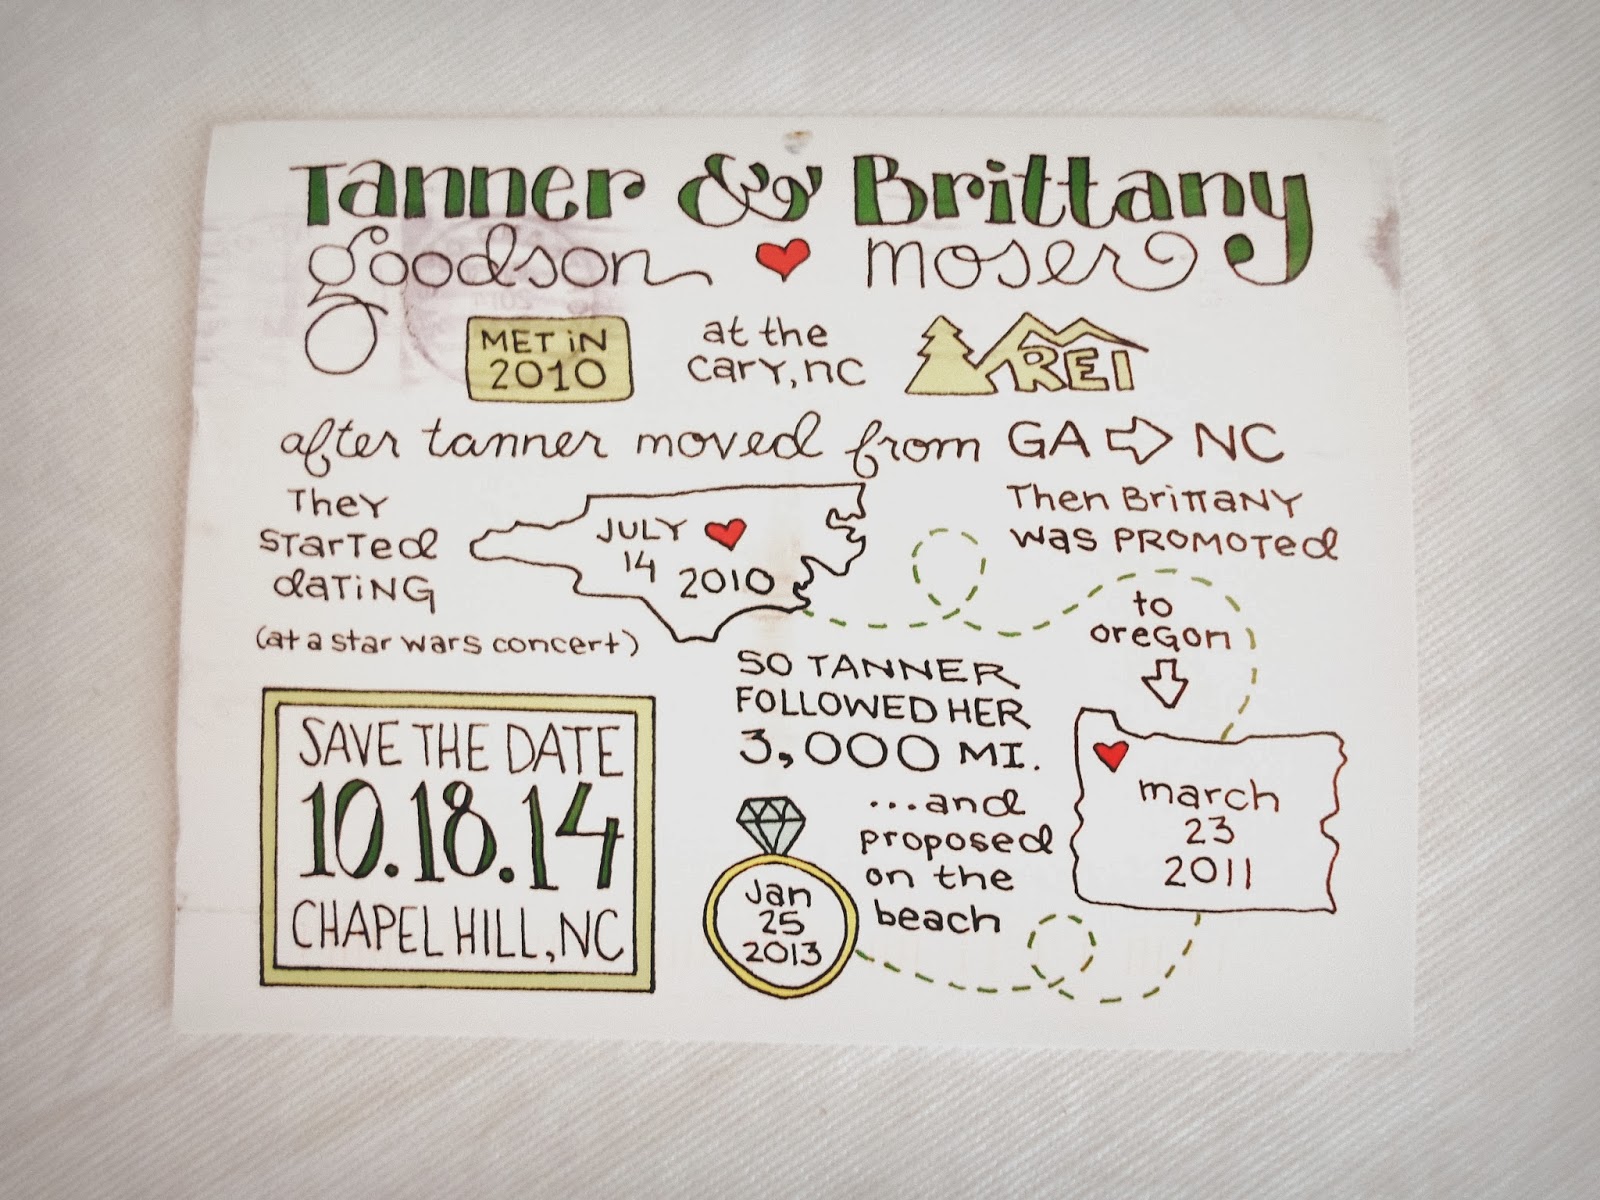 Tanner & Brittany
goodson moser
MET IN
2010
at the
Cary, NC
REI
after tanner moved from GA NC
They
started
dating
(at a star wars concert)
JULY
14 2010
Then Brittany
was promoted
to
oregon
march
23
2011
SO TANNER
FOLLOWED HER
3,000 MI.
...and
proposed
on the
beach
Jan
25
2013
SAVE THE DATE
10.18.14
CHAPEL HILL, NC